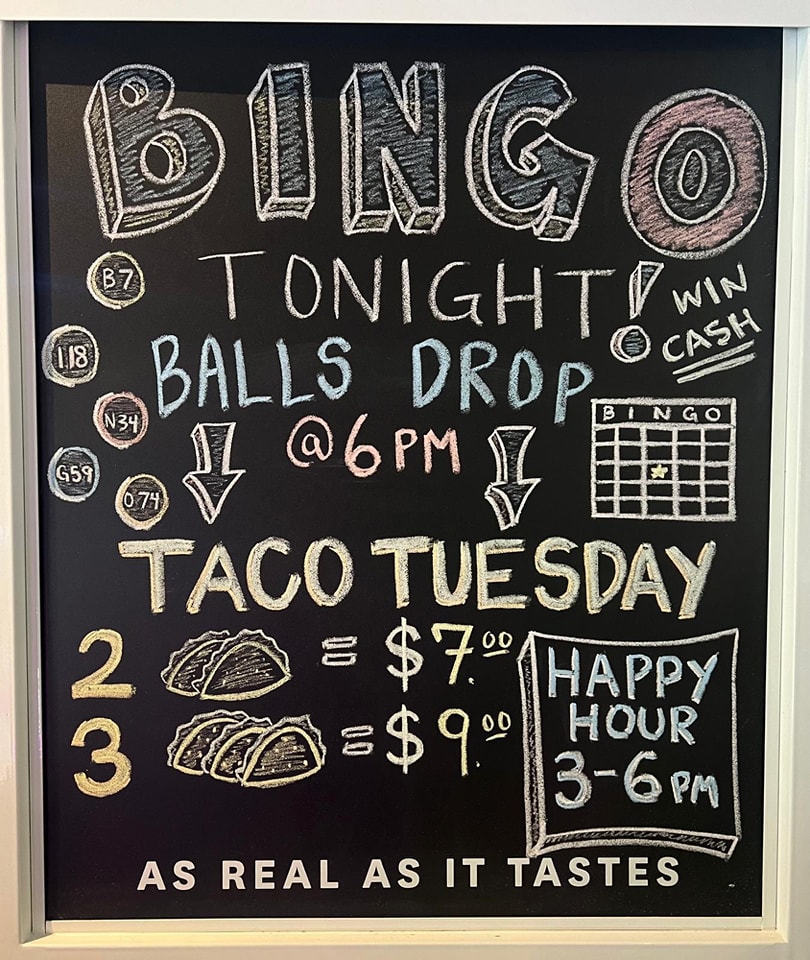 BINGO
TONIGHT!
WIN
CASH
B7
I18
N34
G59
O74
BALLS DROP
@6PM
BINGO
TACO TUESDAY
2 = $7.00
3 = $9.00
HAPPY
HOUR
3-6PM
AS REAL AS IT TASTES